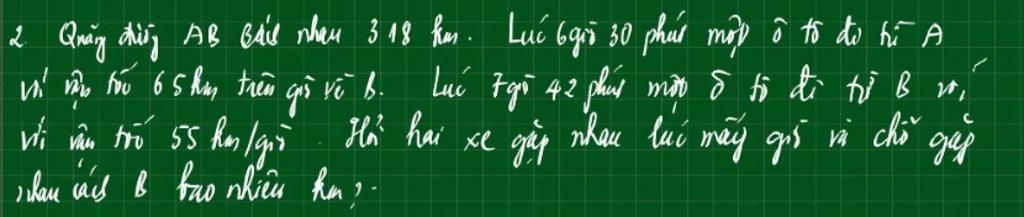 2. Quãng đường AB cách nhau 318 km. Lúc 6 giờ 30 phút một ô tô đi từ A
với vận tốc 65 km trên giờ về B. Lúc 7 giờ 42 phút một ô tô đi từ B với
với vận tốc 55 km/giờ. Hỏi hai xe gặp nhau lúc mấy giờ và chỗ gặp
nhau cách B bao nhiêu km?